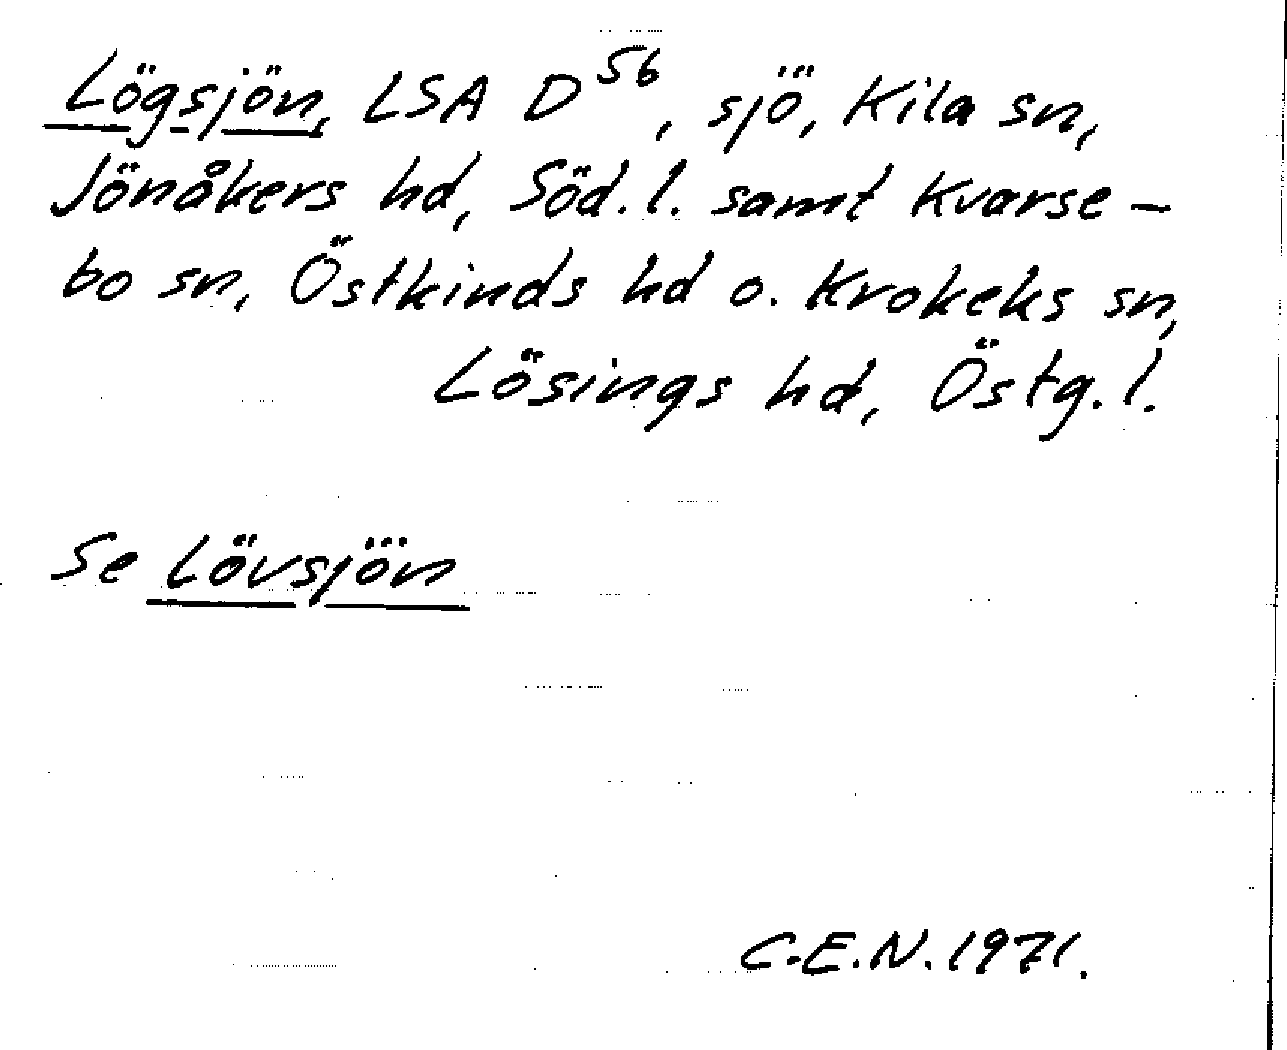 Lögsjön, LSA D56, sjö, Kila sn,
Jönåkers hd, Söd. l. samt Kvarse-
bo sn, Östkinds hd o. Krokeks sn,
Lösings hd, Östg. l.
Se Lövsjön
C.E.N. 1971.